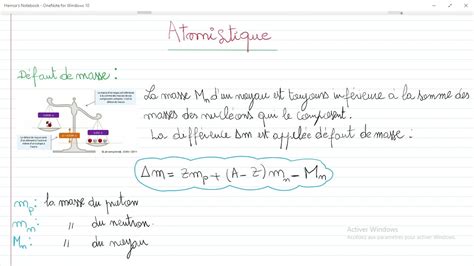 Hamza's Notebook - OneNote for Windows 10
Atomistique
Défaut de masse :
La masse Mn d'un noyau est toujours inférieure à la somme des
masses des nucléons qui le composent.
La différence Δm est appelée défaut de masse :
Δm = Zmp + (A-Z) mn - Mn
mp : la masse du proton
mn : " du neutron.
Mn : " du noyau
Activer Windows
Accédez aux paramètres pour activer Windows.